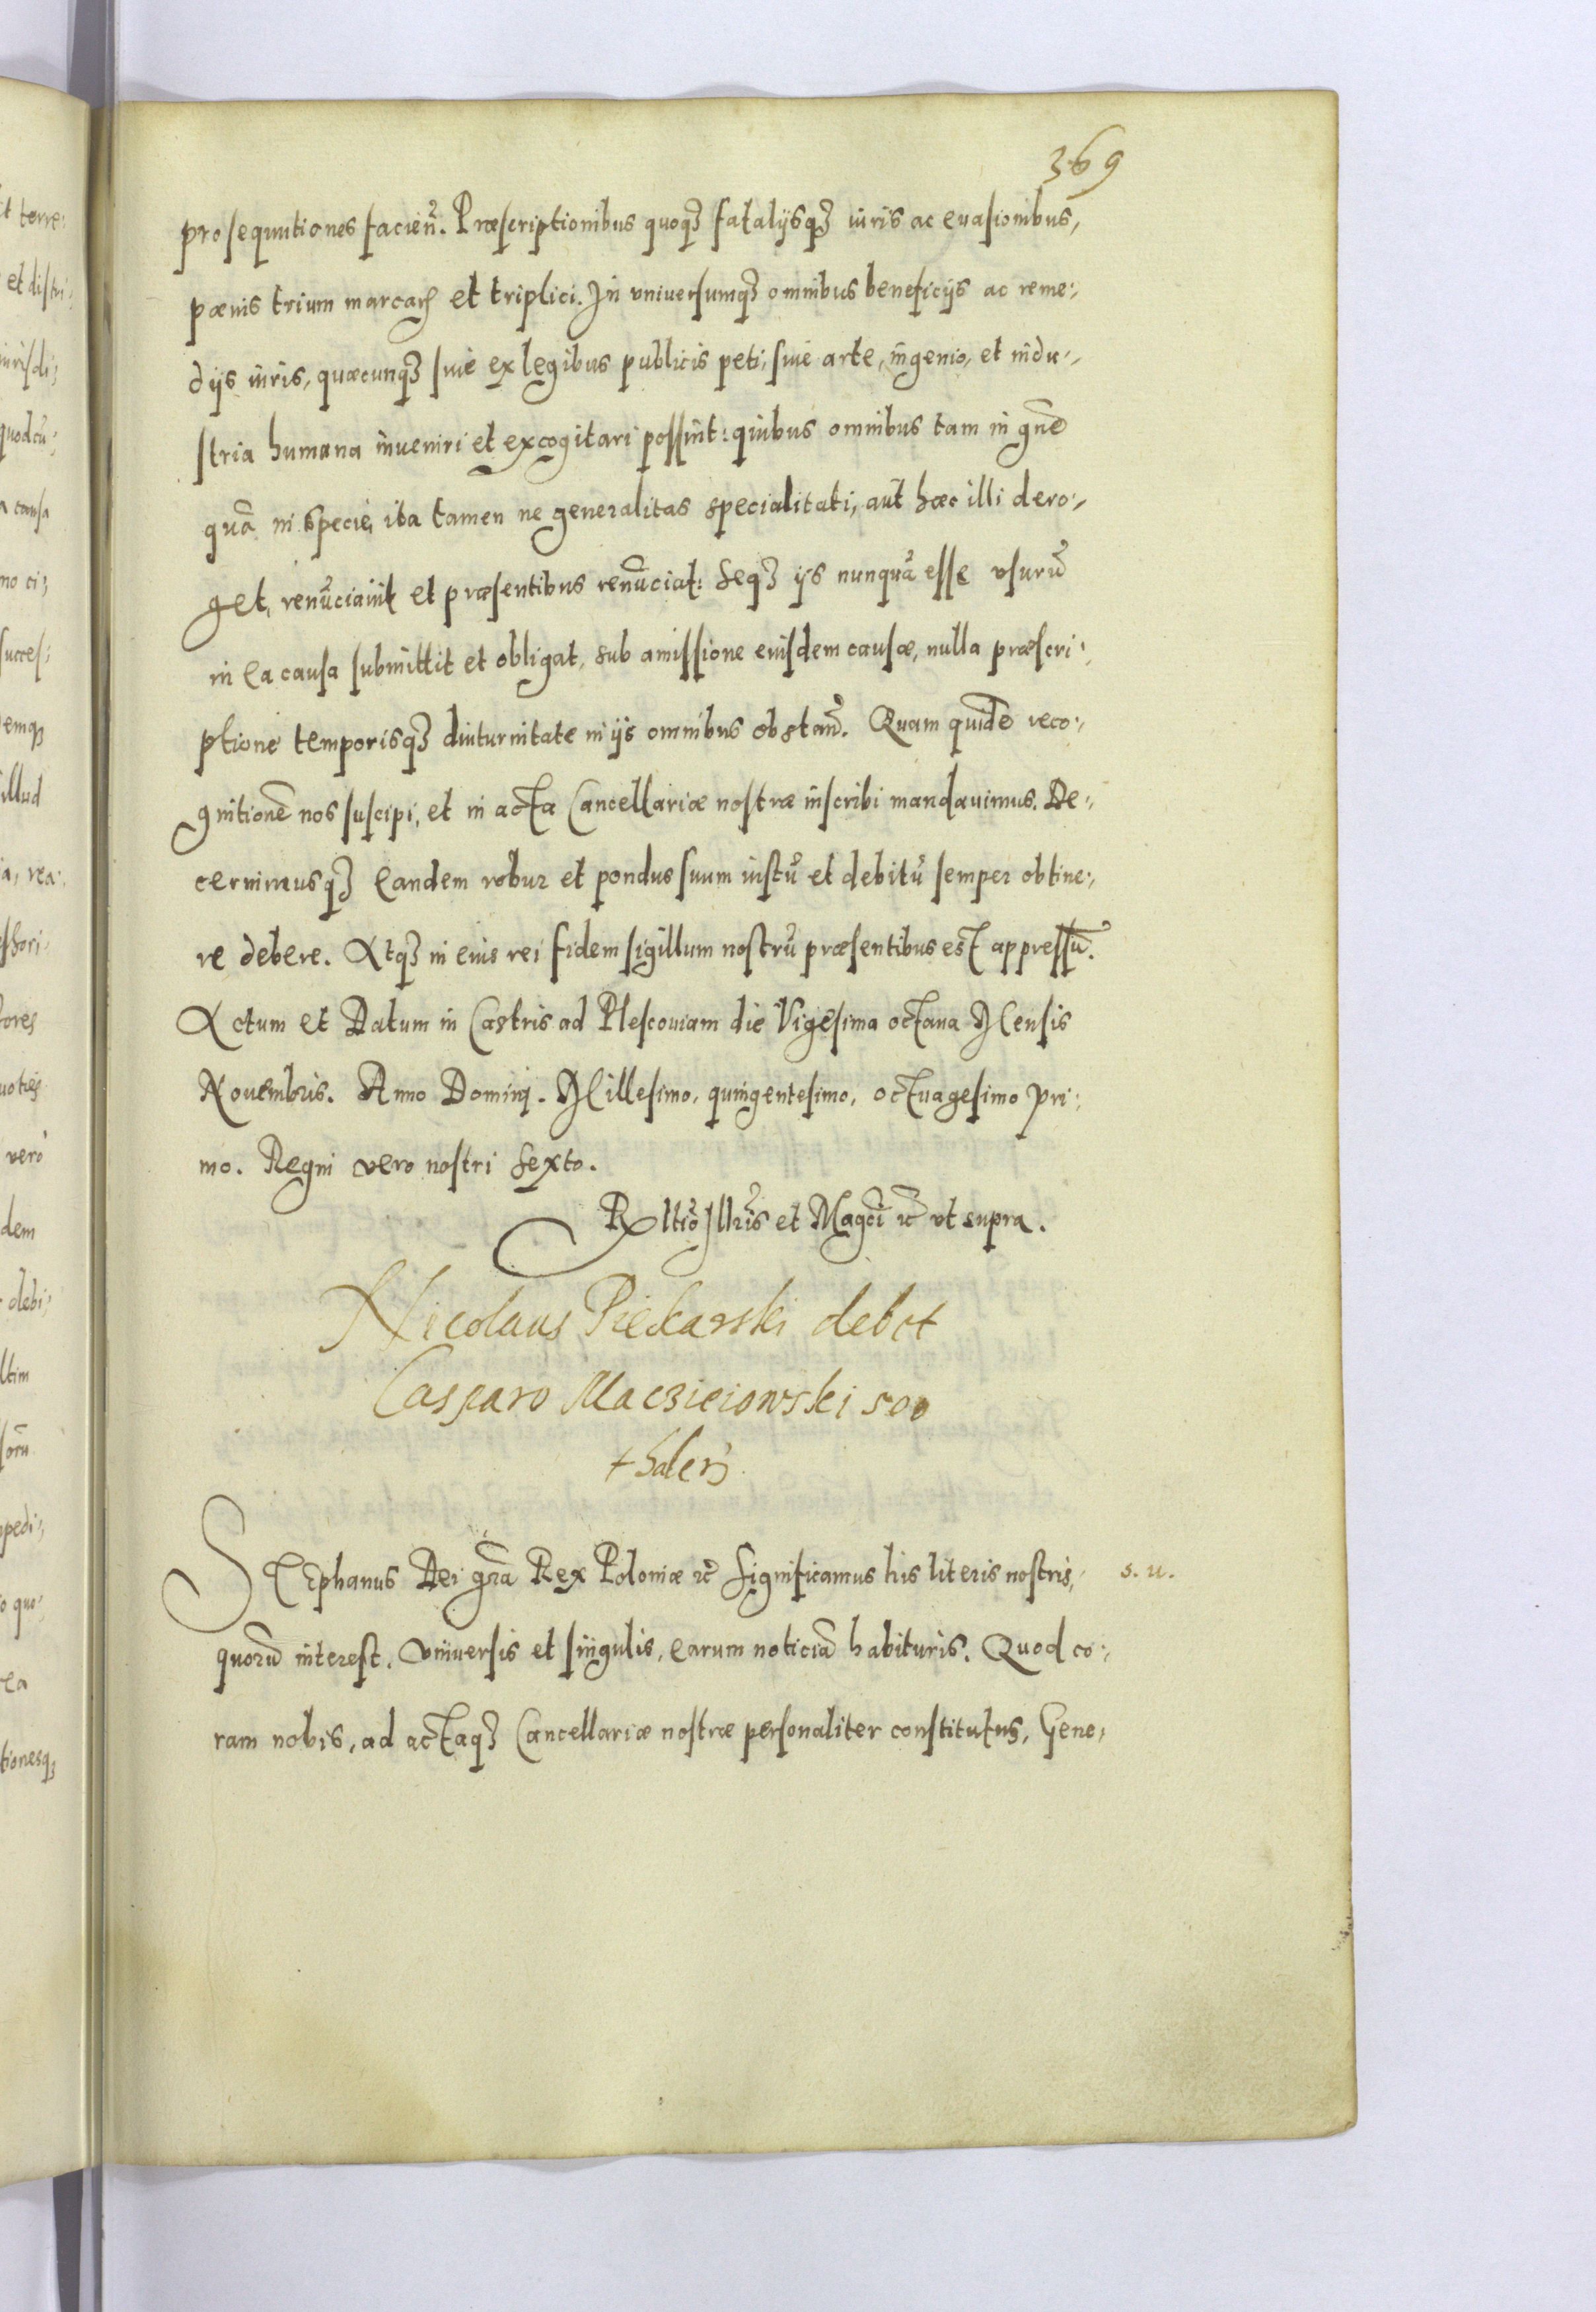 369
prosequutiones facien̄. Præscriptionibus quoqȝ fatalijsqȝ iuris ac euasionibus,
pœnis trium marcarꝝ et triplici. In vniuersumqȝ omnibus beneficijs ac reme:,
dijs iuris, quæcunqȝ siue ex legibus publicis peti, siue arte, ingenio, et indu:,
stria humana inueniri et excogitari possint: quibus omnibus tam in gn̄e
quā in specie, ita tamen ne generalitas specialitati, aut hæc illi dero:,
get, renūciauit et præsentibus renūciat: seqȝ ijs nunquā esse vsurū
in ea causa submittit et obligat, sub amissione eiusdem causæ, nulla præscri:,
ptione temporisqȝ diuturnitate in ijs omnibus obstan̄. Quam quidē reco:,
gnitionē nos suscipi, et in acta Cancellariæ nostræ inscribi mandauimus. De:,
cernimusqȝ eandem robur et pondus suum iustū et debitū semper obtine:,
re debere. Atqȝ in eius rei fidem sigillum nostrū præsentibus est appressū.
Actum et Datum in Castris ad Plescouiam die Vigesima octaua Mensis
Nouembris. Anno Domini. Millesimo, quingentesimo, octuagesimo pri:
mo. Regni vero nostri sexto.
Rltio Illris et Magci ꝛc vt supra.
Nicolaus Piekarski debet
Casparo Maczieiowski 500
thaleꝝ
Stephanus Dei gr̄a Rex Poloniæ ꝛc Significamus his literis nostris, s. u.
quorū interest, vniuersis et singulis, earum noticiā habituris. Quod co:,
ram nobis, ad actaqȝ Cancellariæ nostræ personaliter constitutus, Gene,